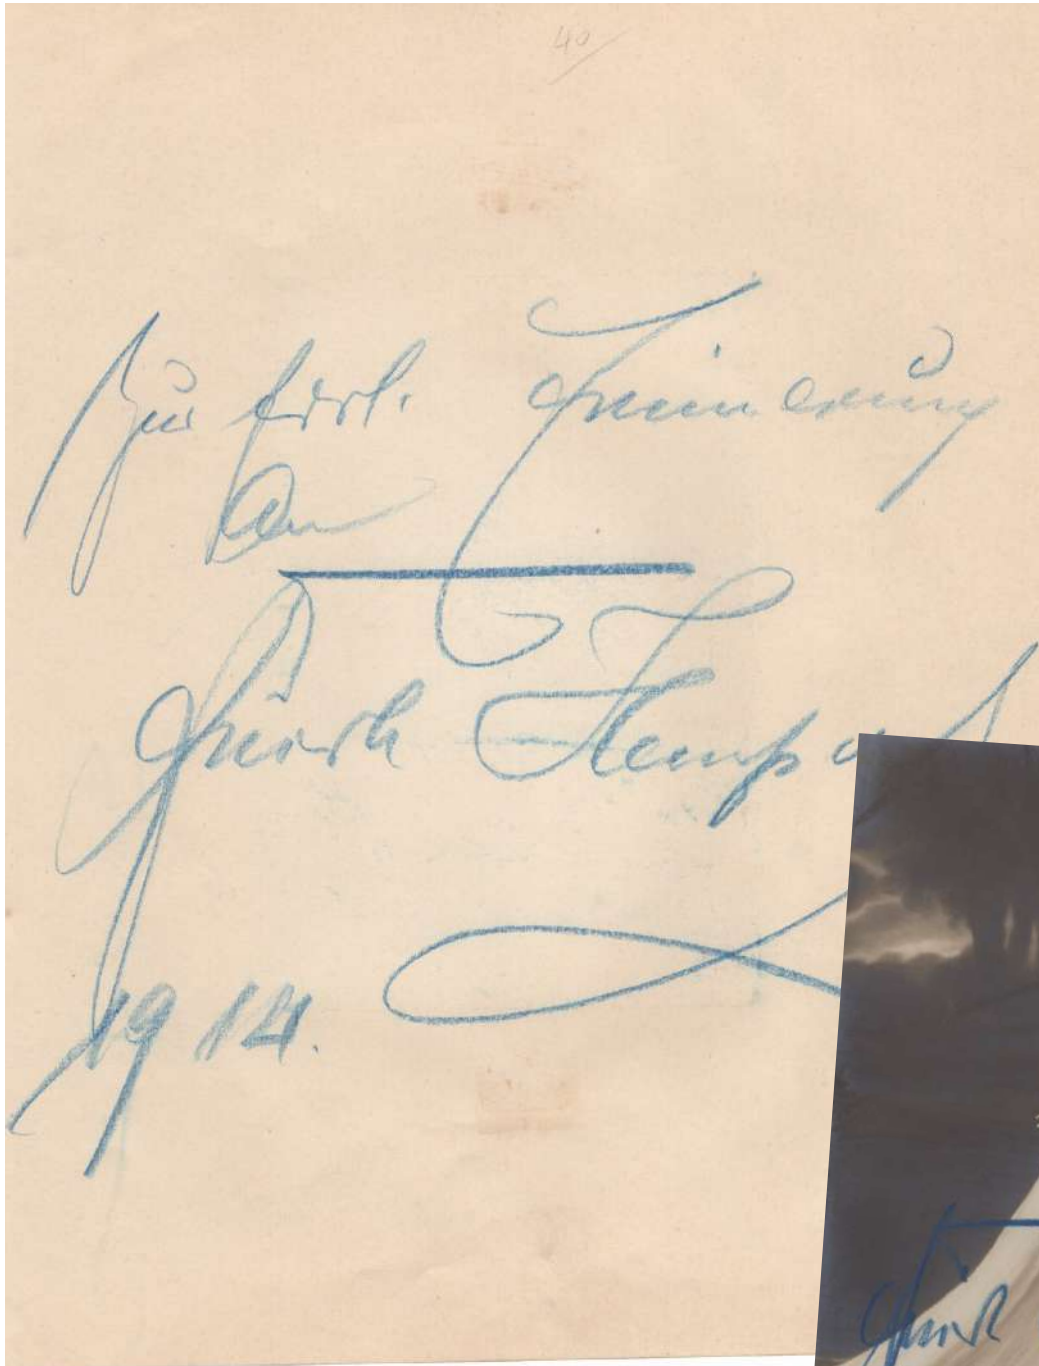 40/
Zur frdl. Erinnerung
an
Frieda Hempel
1914.
Frieda